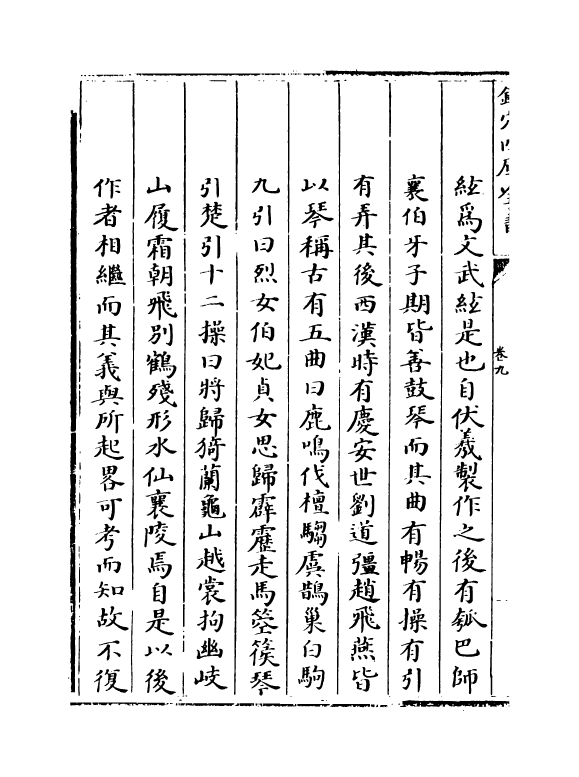 欽定四庫全書
卷九
絃爲文武絃是也自伏羲製作之後有瓠巴師
襄伯牙子期皆善鼓琴而其曲有暢有操有引
有弄其後西漢時有慶安世劉道彊趙飛燕皆
以琴稱古有五曲曰鹿鳴伐檀騶虞鵲巢白駒
九引曰烈女伯妃貞女思歸霹靂走馬箜篌琴
引楚引十二操曰將歸猗蘭龜山越裳拘幽岐
山履霜朝飛别鶴殘形水仙襄陵焉自是以後
作者相繼而其義與所起畧可考而知故不復